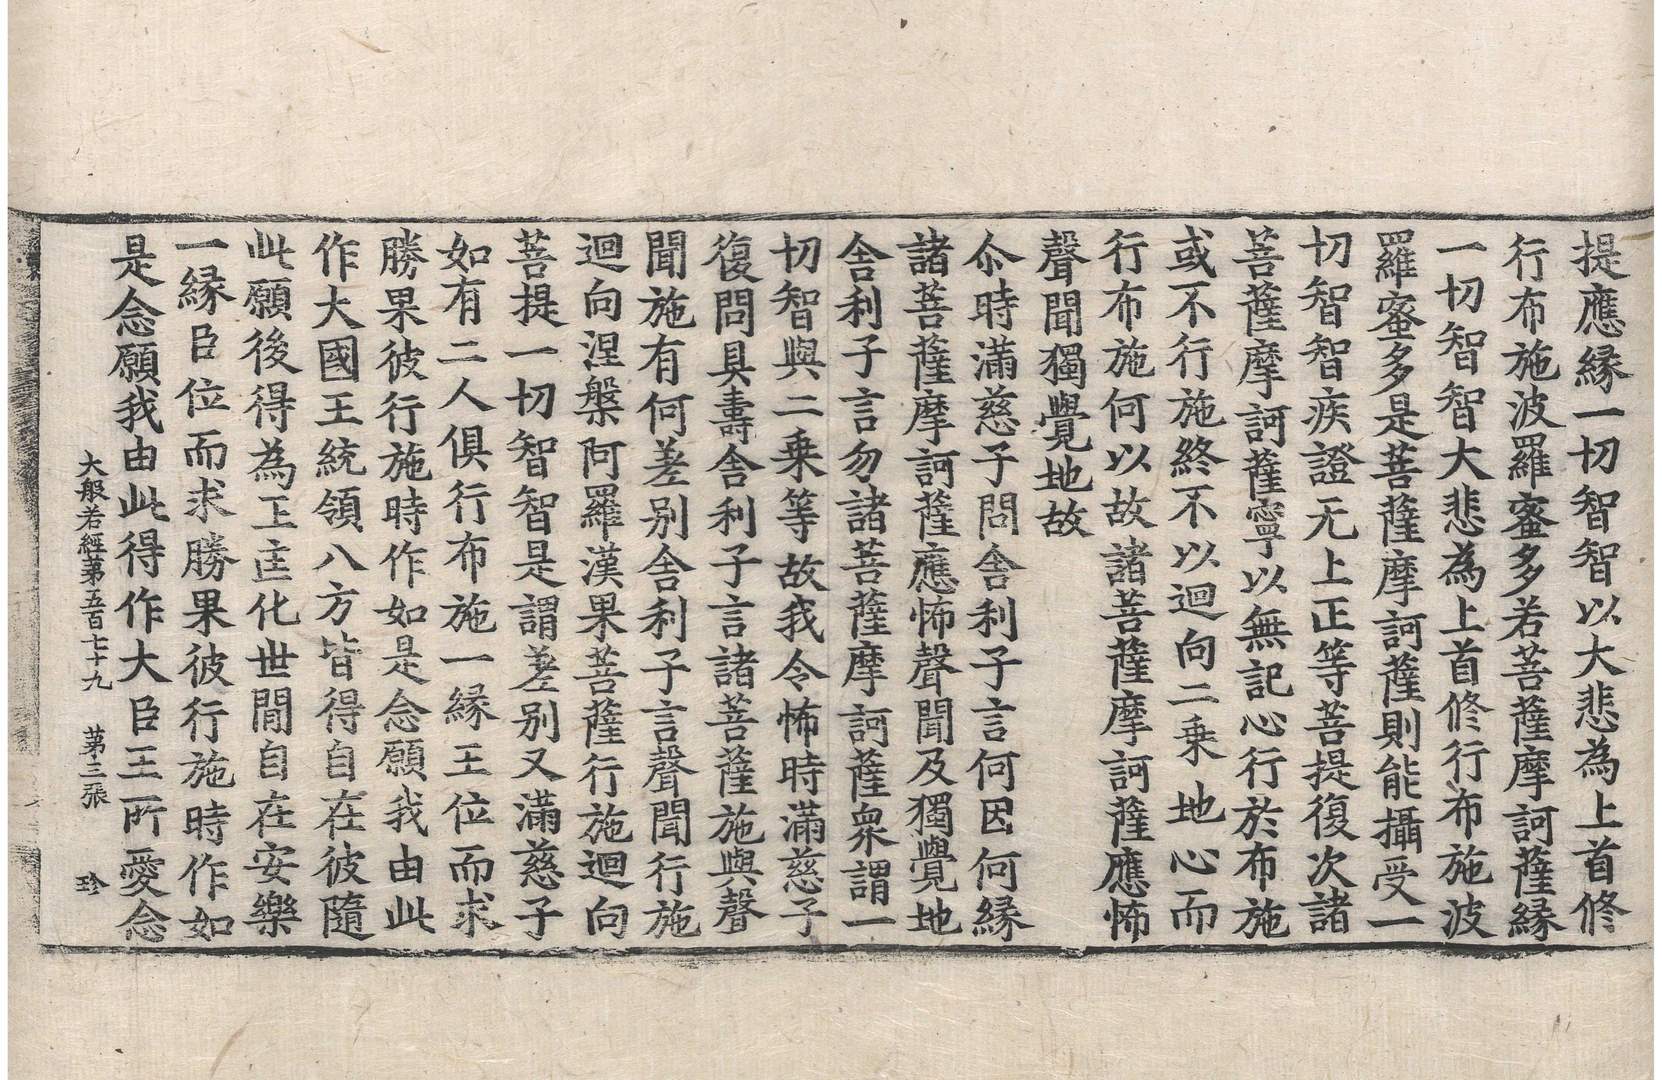 提應緣一切智智以大悲為上首修
行布施波羅蜜多若菩薩摩訶薩緣
一切智智大悲為上首修行布施波
羅蜜多是菩薩摩訶薩則能攝受一
切智智疾證无上正等菩提復次諸
菩薩摩訶薩寧以無記心行於布施
或不行施終不以迴向二乗地心而
行布施何以故諸菩薩摩訶薩應怖
聲聞獨覺地故
尒時滿慈子問舍利子言何因何緣
諸菩薩摩訶薩應怖聲聞及獨覺地
舍利子言勿諸菩薩摩訶薩衆謂一
切智與二乗等故我令怖時滿慈子
復問具壽舍利子言諸菩薩施與聲
聞施有何差別舍利子言聲聞行施
迴向涅槃阿羅漢果菩薩行施迴向
菩提一切智智是謂差別又滿慈子
如有二人俱行布施一緣王位而求
勝果彼行施時作如是念願我由此
作大國王統領八方皆得自在彼隨
此願後得為王匡化世間自在安樂
一緣臣位而求勝果彼行施時作如
是念願我由此得作大臣王所愛念
大般若經第五百七十九 第三張 珍